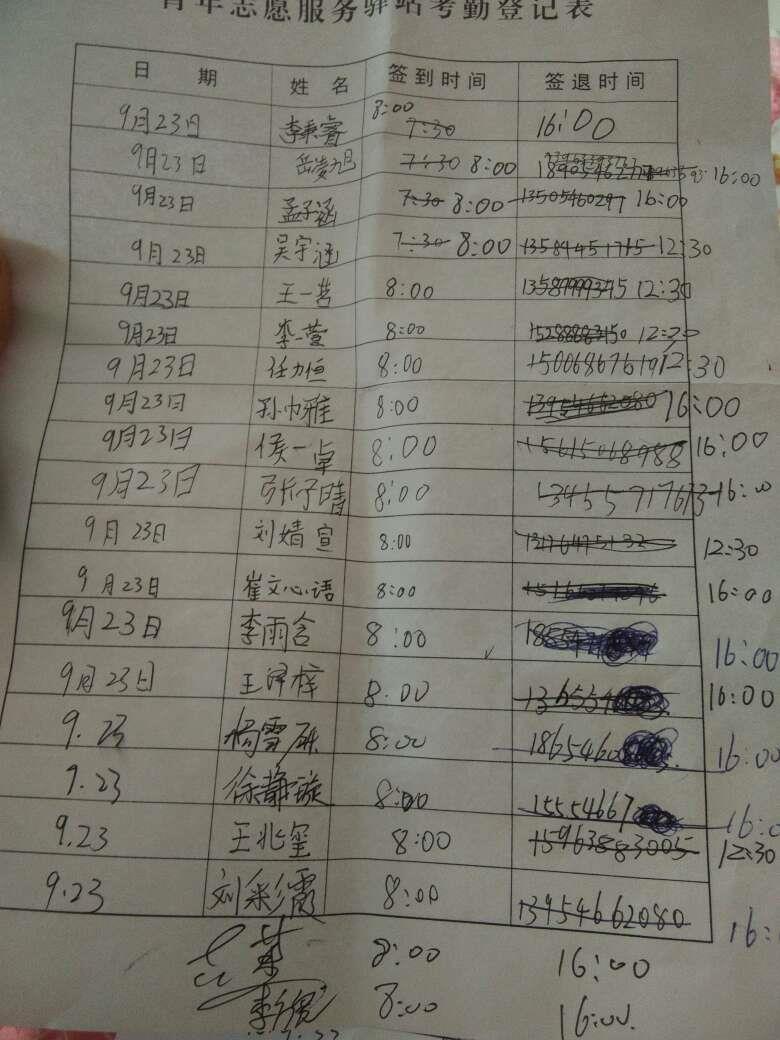 青年志愿服务驿站考勤登记表
日 期 姓 名 签到时间 签退时间
9月23日 李秉睿 7:30 8:00 16:00
9月23日 7:30 8:00 16:00
9月23日 孟子涵 7:30 8:00 13505460297 16:00
9月23日 吴宇涵 7:30 8:00 13589451715 12:30
9月23日 王一茗 8:00 12:30
9月23日 李一萱 8:00 12:30
9月23日 任力恒 8:00 15006867619 12:30
9月23日 孙巾雅 8:00 13954662080 16:00
9月23日 侯一卓 8:00 15615068988 16:00
9月23日 张予晴 8:00 13455717673 16:00
9月23日 刘婧宣 8:00 12:30
9月23日 崔文心语 8:00 16:00
9月23日 李雨含 8:00 16:00
9月23日 王泽梓 8:00 16:00
9.23 杨雪 8:00 18654608 16:00
9.23 徐静璇 8:00 15554667 16:0
9.23 王兆玺 8:00 15963883005 12:30
9.23 刘彩霞 8:00 13954662080 16:
8:00 16:00
8:00 16:00.